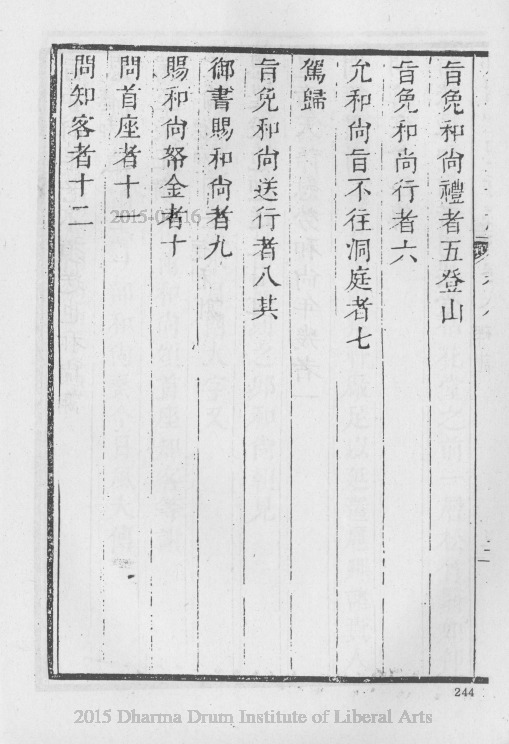 旨免和尚禮者五登山
旨免和尚行者六
允和尚旨不往洞庭者七
駕歸
旨免和尚送行者八其
御書賜和尚者九
賜和尚帑金者十
問首座者十一
問知客者十二
2015-04-16
二
244
2015 Dharma Drum Institute of Liberal Arts